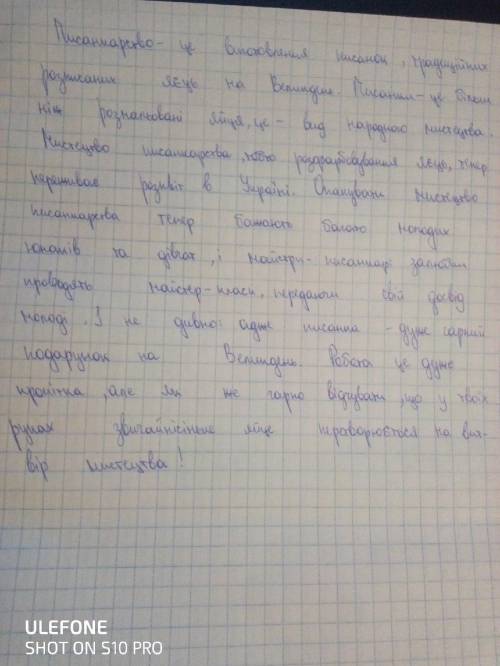 Писанкарство - це виготовлення писанок, традиційних
розписаних яєць на Великдень. Писанки - це більш
ніж розмальовані яйця, це - вид народного мистецтва
Мистецтво писанкарства, тобто розфарбовування яєць, тепер
переживає розквіт в Україні. Опанувати мистецтво
писанкарства тепер бажають багато молодих
юнаків та дівчат, і майстри-писанкарі залюбки
проводять майстер-класи, передаючи свій досвід
молоді. І не дивно: адже писанка - дуже гарний
подарунок на Великдень. Робота це дуже
кропітка, але як же гарно відчувати, що у твоїх
руках звичайнісіньке яйце перетворюється на вит-
вір мистецтва!
ULEFONE
SHOT ON S10 PRO